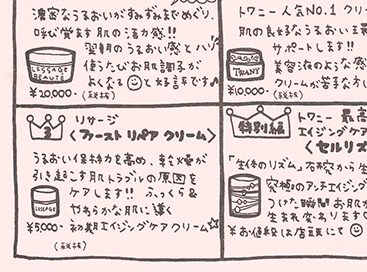 濃密なうるおいがすみずみまでめぐり、
呼び覚ます肌の活力感!!
翌朝のうるおい感とハリ
使うたび お肌調子が
よくなると好評です
LISSAGE
BEAUTÉ
¥20,000-(税抜)
トワニー人気NO.1 クリー
肌の良好なうるおい環
サポートします!!
美容液のような感
クリームが苦手な方
TWANY
¥10,000-(税抜)
3
リサージ
〈ファースト リペア クリーム〉
うるおい保持力を高め、乾燥が
引き起こす肌トラブルの原因を
ケアします!! ふっくら&
やわらかな肌に導く
LISSAGE
¥5000- 初期エイジングケアクリーム☆
(税抜)
特別編
トワニー 最高
エイジングケア
〈セルリズ
「生体のリズム」研究から生
究極のアンチエイジング
つけた瞬間 お肌が
生まれ変わります♡
¥お値段は店頭にて